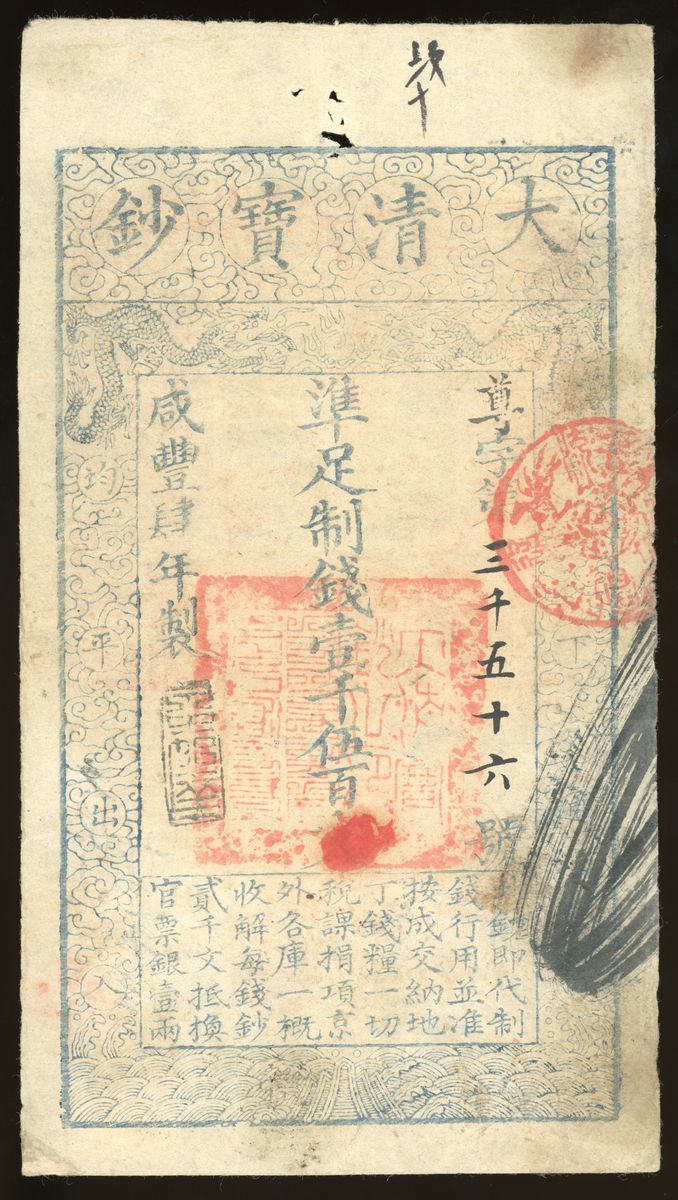 大清寶鈔
尊字第三千五十六號
準足制錢壹千伍百文
咸豐肆年製
均平出入
此鈔即代制
錢行用並准
按成交納地
丁錢糧一切
稅課捐項京
外各庫一概
收解每錢鈔
貳千文抵換
官票銀壹兩